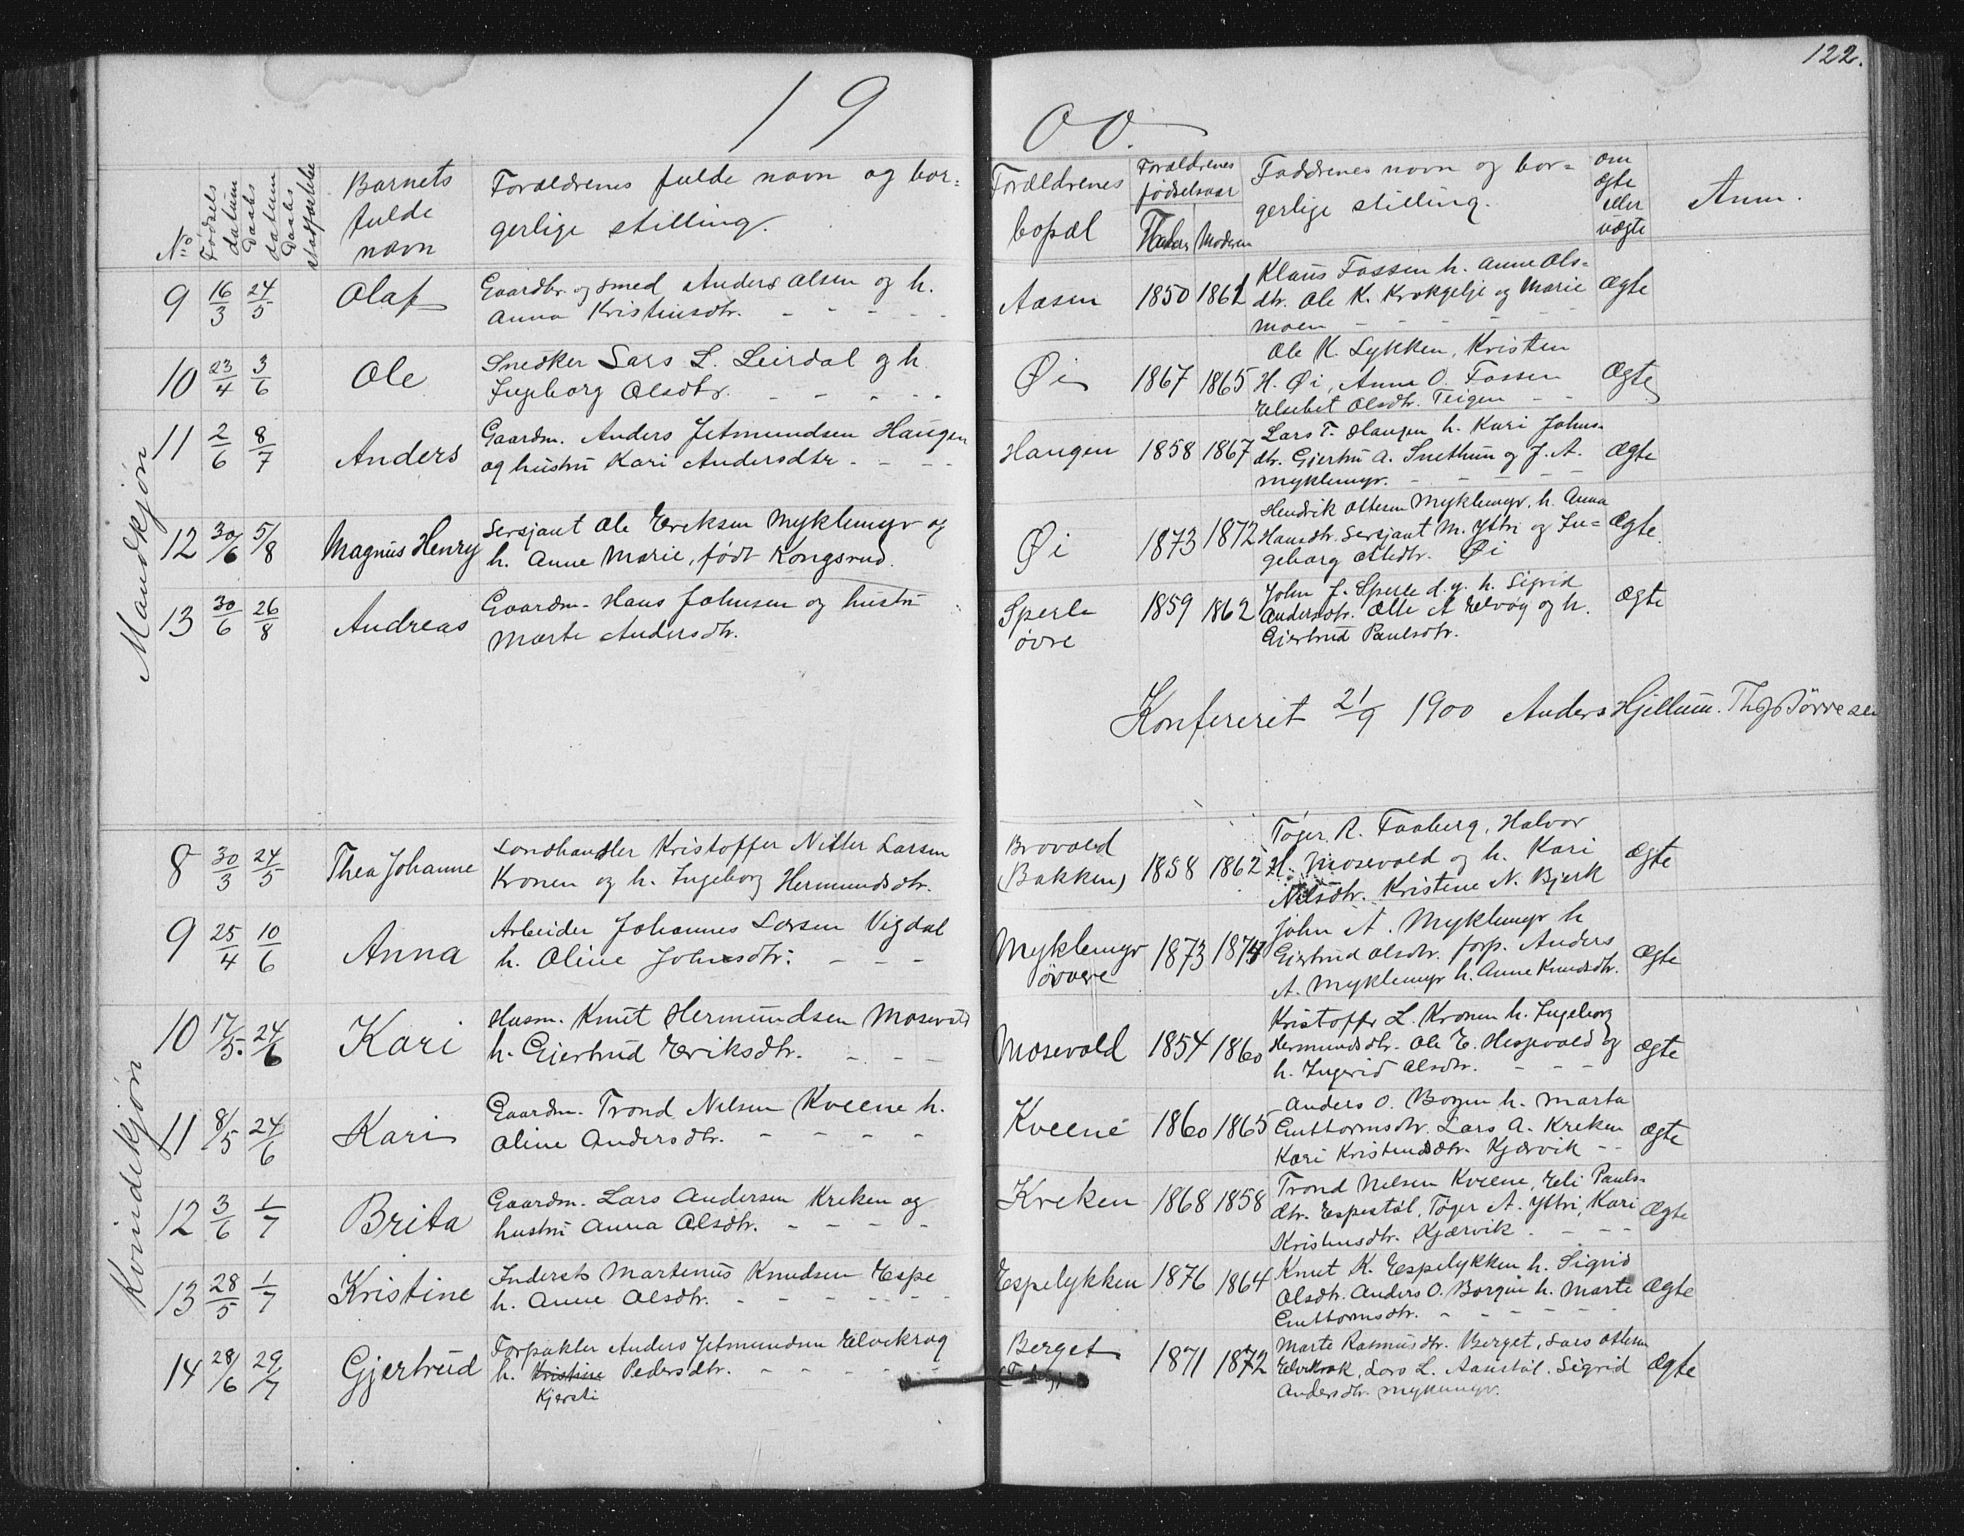 122.
19
00.
Mandkjøn
No
Fødsels datum
Daabs datum
Daabs stadfæstelse
Barnets fulde navn
Forældrenes fulde navn og bor=
gerlige stilling.
Forældrenes bopæl
Forældrenes fødselsaar
Faders Moderen
Faddrenes navn og bor=
gerlige stilling.
om ægte eller uægte
Anm.
9 16/3 24/5 Olaf
Gaardbr. og smed Anders Olsen og h.
Anna Kristensdtr. - - - - -
Aasen 1850 1861
Klaus Fossen h. Anne Ols-
dtr. Ole K. Krokgelje og Marie
Moen - - - - -
Ægte
10 23/4 3/6 Ole
Snedker Lars L. Leirdal og h.
Ingeborg Olsdtr. - - - - -
Øi 1867 1865
Ole K. Lykken, Kristen
H. Øi, Anna O. Fossen
Elsebet Olsdtr. Teigen - -
Ægte
11 2/6 8/7 Anders
Gaardm. Anders Jetmundsen Haugen
og hustru Kari Andersdtr. - - -
Haugen 1858 1867
Lars T. Haugen h. Kari Johns-
dtr. Gjertru A. Snethun og J. A.
Myklemyr. - - - -
Ægte
12 30/6 5/8 Magnus Henry
Sersjant Ole Eriksen Myklemyr og
h. Anne Marie, født Kongsrud.
Øi 1873 1872
Hendrik Ottesen Myklemyr, h. Anna
Hansdtr. Sersjant M. Yttri og In=
geborg Ottedtr. Øi
Ægte.
13 30/6 26/8 Andreas
Gaardm. Hans Johnsen og hustru
Marte Andersdtr.
Sperle øvre 1859 1862
John J. Sperle d.y. h. Sigrid
Andersdtr. Olle A Elvøy og h.
Gjertrud Paulsdtr.
Ægte
Konfereret 21/9 1900 Anders Hjellum. Th Tørresen
Kvindekjøn
8 30/3 24/5 Thea Johanne
Landhandler Kristoffer Nitter Larsen
Kronen og h. Ingeborg Hermundsdtr.
Brovold (Bakken) 1858 1862
Tøger R. Faaberg, Halvor
H. Mosevold og h. Kari
Nilsdtr. Kristene N. Bjerk
Ægte
9 25/4 10/6 Anna
Arbeider Johannes Larsen Vigdal
h. Oline Johnsdtr. - - -
Myklemyr øvre 1873 1874
John A. Myklemyr h
Gjertrud Olsdtr. forp. Anders
A. Myklemyr h. Anne Knudsdtr.
Ægte
10 17/5. 24/6 Kari
Husm. Knut Hermundsen Mosevold
h. Gjertrud Eriksdtr. - - -
Mosevold 1854 1860
Kristoffer L. Kronen h. Ingeborg
Hermundsdtr. Ole E. Hesjevold og
h. Ingerid Olsdtr. - - -
Ægte
11 8/5 24/6 Kari
Gaardm. Trond Nilsen Kveene h.
Oline Andersdtr. - - - -
Kveene 1860 1865
Anders O. Borgen h. Marta
Guttormsdtr. Lars A. Kreken
Kari Kristensdtr. Kjærvik - -
Ægte
12 3/6 1/7 Brita
Gaardm. Lars Andersen Kreken og
hustru Anna Olsdtr. - - - -
Kreken 1868 1858
Trond Nilsen Kveene, Eli Pauls-
dtr. Espestøl, Tøger A. Yttri, Kari
Kristensdtr. Kjærvik - - -
Ægte
13 28/5 1/7 Kristine
Inderst Martenus Knudsen Espe
h. Anne Olsdtr. - - - - - -
Espelykken 1876 1864
Knut K. Espelykken h. Sigrid
Olsdtr. Anders O. Borgen h. Marte
Guttormsdtr. - - - - -
Ægte
14 28/6 29/7 Gjertrud
Forpakter Anders Jetmundsen Elvekrog
h. Kristine Pedersdtr. - - - -
Kjersti
Berget 1871 1872
Marte Rasmusdtr. Berget, Lars Ottesen
Elvekrok, Lars L. Aanstøl. Sigrid
Andersdtr. Myklemyr.
Ægte